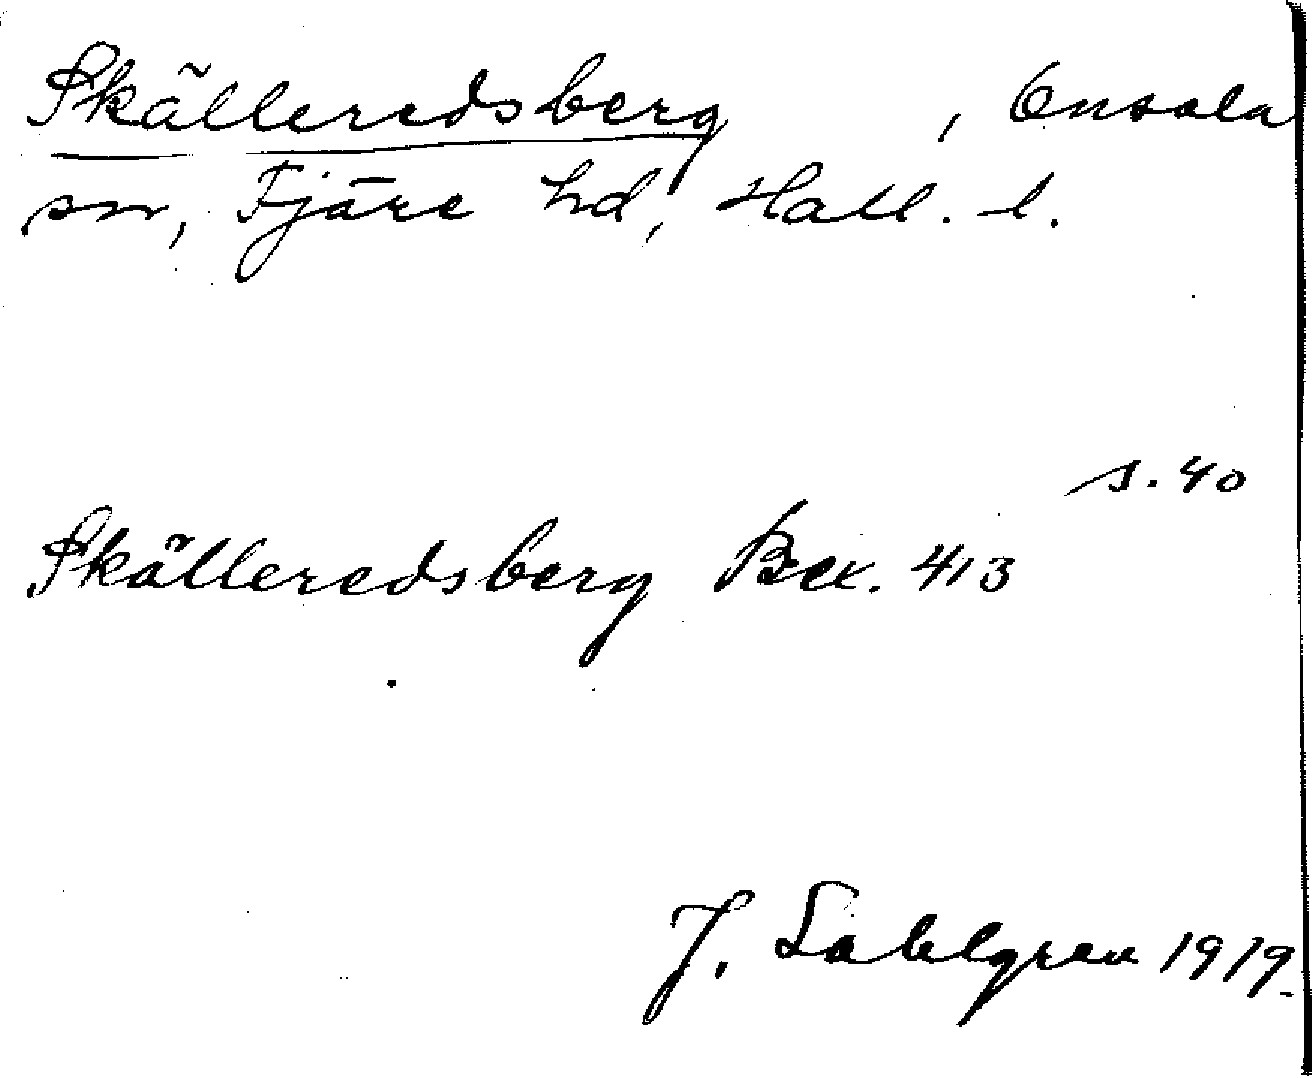 Skälleredsberg , Onsala
sn, Fjäre hd, Hall. l.
s. 40
Skälleredsberg Bex. 413
J. Sahlgren 1919.